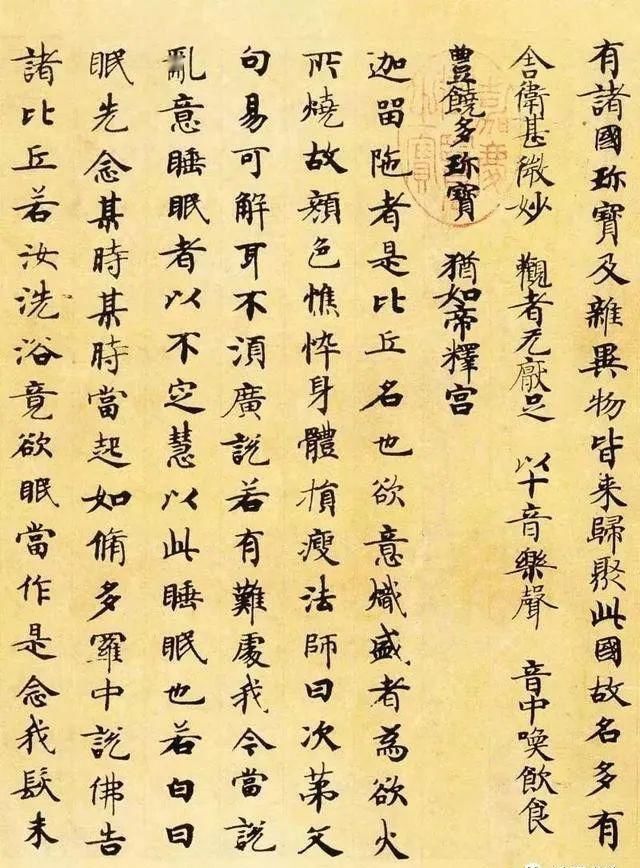 有諸國珎寶及雜異物皆来歸聚此國故名多有
舍衛甚微妙 觀者无厭足 以十音樂聲 音中喚飲食
豊饒多珎寶 猶如帝釋宫
迦留陁者是比丘名也欲意熾盛者為欲火
所燒故顔色憔悴身體損瘦法師曰次第文
句易可解耳不湏廣說若有難處我今當說
亂意睡眠者以不定慧以此睡眠也若白日
眠先念某時某時當起如脩多羅中說佛告
諸比丘若汝洗浴竟欲眠當作是念我髮未